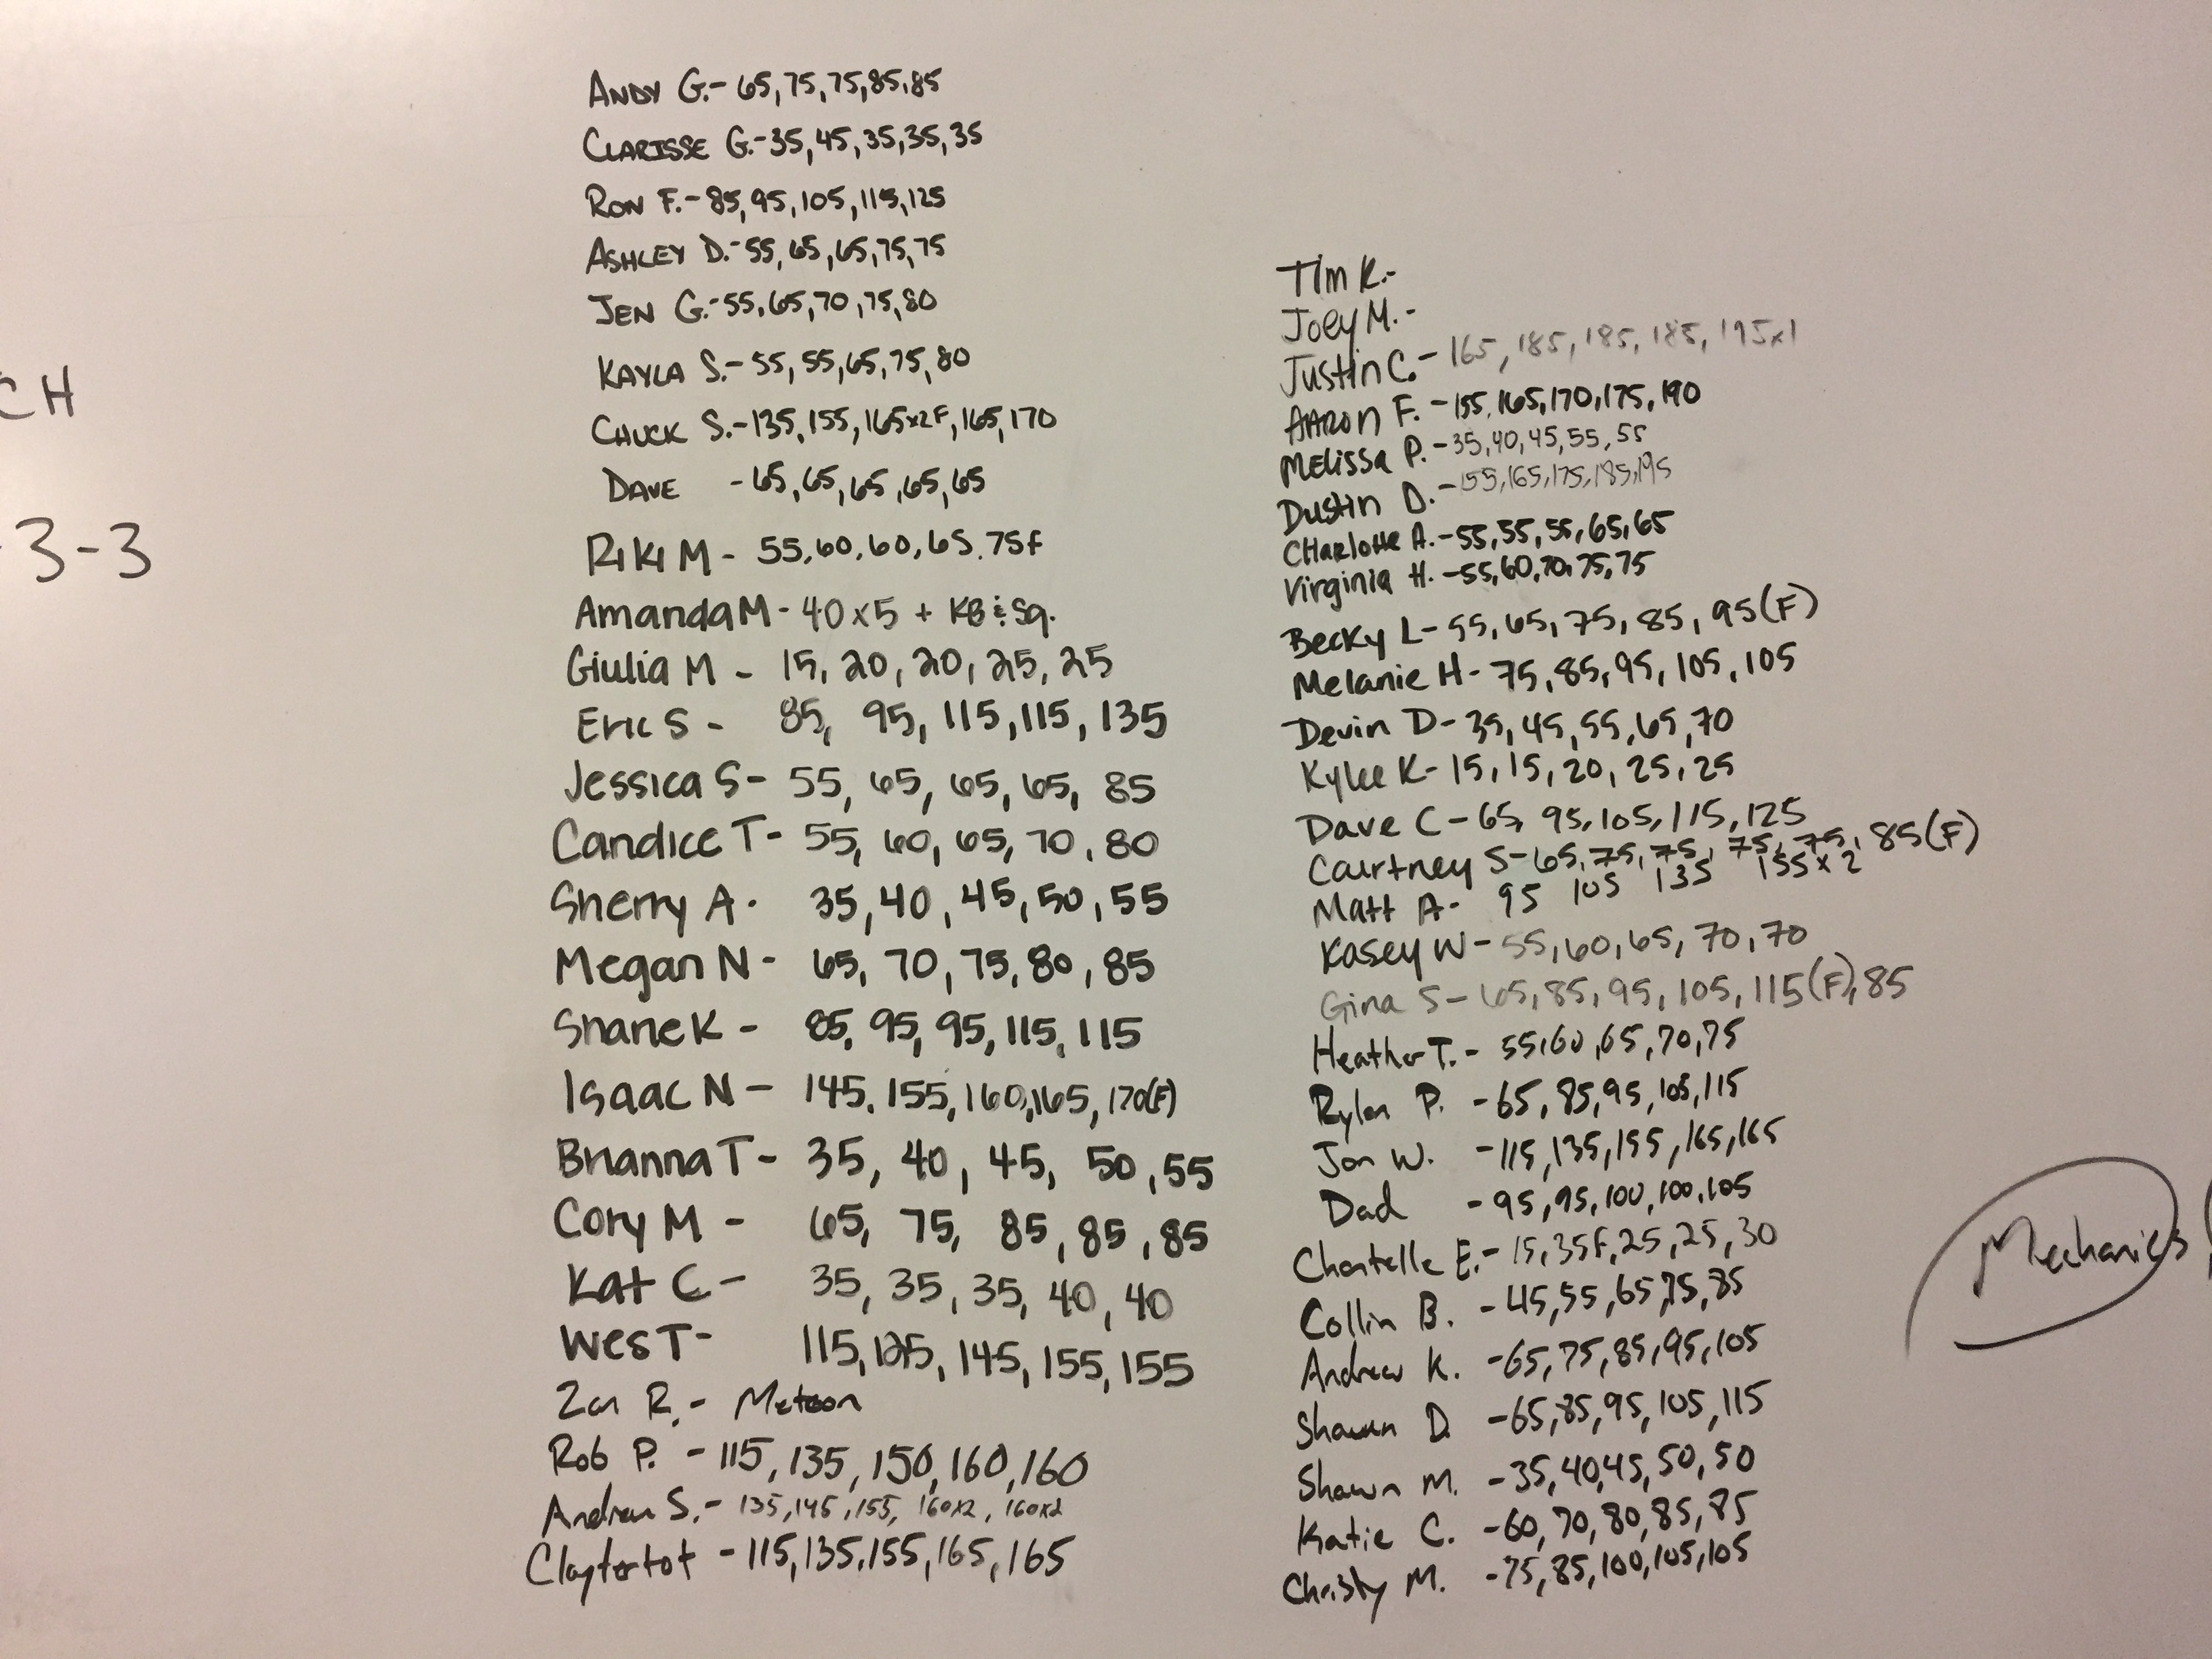 CH
3-3
ANDY G.- 65,75,75,85,85
CLARISSE G.-35,45,35,35,35
RON F.-85,95,105,115,125
ASHLEY D.-55,65,65,75,75
JEN G.-55,65,70,75,80
KAYLA S.-55,55,65,75,80
CHUCK S.-135,155,165x2F,165,170
DAVE -65,65,65,65,65
RIKI M - 55,60,60,65.75f
Amanda M - 40x5 + KB & Sq.
Giulia M - 15, 20, 20, 25, 25
Eric S - 85, 95, 115, 115, 135
Jessica S- 55, 65, 65, 65, 85
Candice T- 55, 60, 65, 70, 80
Sherry A. 35,40,45,50,55
Megan N - 65, 70, 75, 80, 85
Shane K - 85, 95, 95, 115, 115
Isaac N - 145, 155, 160,165, 170(F)
Brianna T- 35, 40, 45, 50, 55
Cory M - 65, 75, 85, 85, 85
Kat C - 35, 35, 35, 40, 40
Wes T- 115, 125, 145, 155, 155
R.-
Rob P. - 115, 135, 150, 160, 160
Andrew S.- 135,145,155, 160x2, 160x2
Claytertot - 115,135,155,165,165
Tim K.-
Joey M.-
Justin C.- 165, 185, 185, 185, 195x1
AARON F. - 155,165,170,175,190
MELissa P. -35,40,45,55,55
Dustin D. -155,165,175,185,195
CHarlotte A.-55,55,55,65,65
Virginia H. -55,60,70,75,75
Becky L- 55, 65, 75, 85, 95(F)
Melanie H- 75, 85, 95, 105, 105
Devin D- 35, 45, 55, 65, 70
Kylee K- 15, 15, 20, 25, 25
Dave C - 65, 95, 105, 115, 125
Courtney S-65,75,75, 75, 75, 85(F)
Matt A- 95 105 135 155x2
Kasey W- 55,60,65, 70,70
Gina S- 65,85,95, 105, 115(F),85
Heather T. - 55,60,65,70,75
Rylan P. -65,85,95,105,115
Jon W. -115,135,155,165,165
Dad -95,95,100,100,105
Chantelle E.- 15,35f,25,25,30
Collin B. -45,55,65,75,85
Andrew K. -65,75,85,95,105
Shawn D. -65,85,95,105,115
Shawn M. -35,40,45,50,50
Katie C. -60,70,80,85,85
Christy M. -75,85,100,105,105
Mechanics